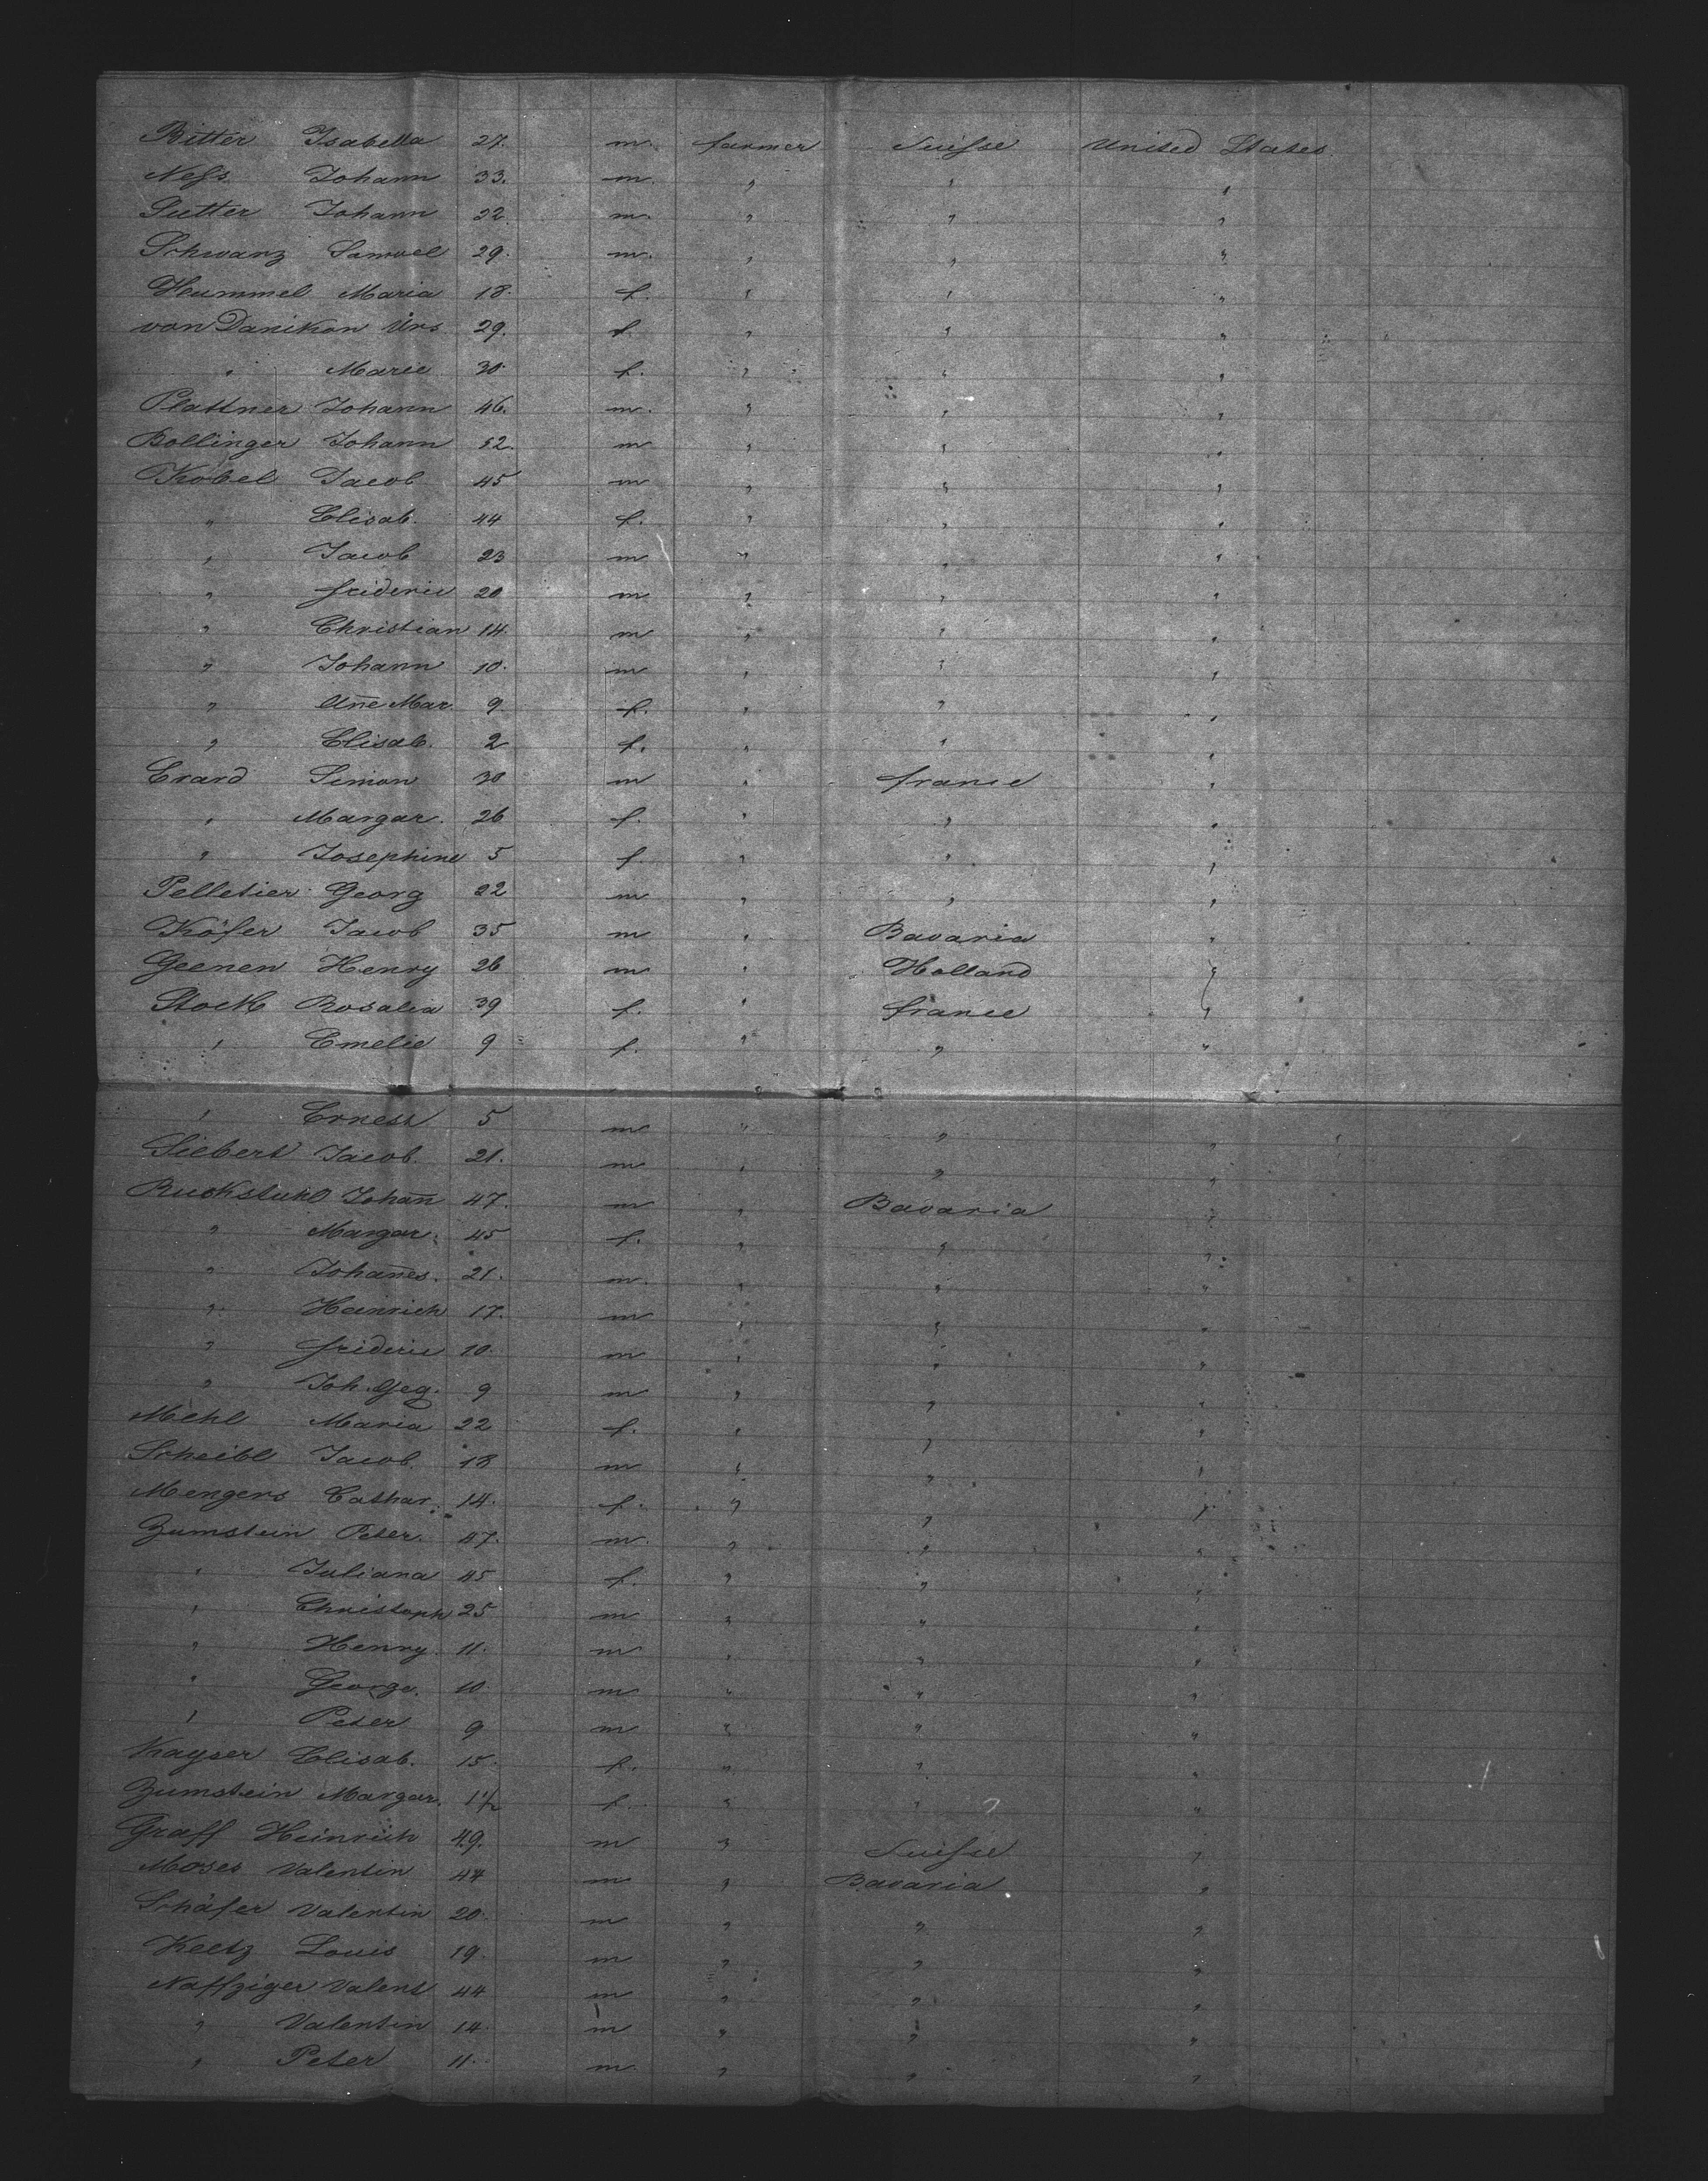 Ritter Isabella 27. m. farmer Suisse United States
Ness Johann 33. m. " " "
Sutter Johann 22. m. " " "
Schwanz Samuel 29. m. " " "
Hummel Maria 18. f. " " "
von Daniken Urs 29. f. " " "
" Marie 30. f. " " "
Plattner Johann 46. m. " " "
Bollinger Johann 52. m " " "
Kobel Jacob 45 m " " "
" Elisab. 44 f. " " "
" Jacob 23 m " " "
" frideric 20 m " " "
" Christian 14. m " " "
" Johann 10. m " " "
" Añe Mar. 9 f. " " "
" Elisab. 2 f. " " "
Erard Simon 30 m " france "
" Margar. 26 f. " " "
" Josephine 5 f. " " "
Pelletier Georg 22 m " " "
Köfer Jacob 35 m " Bavaria "
Geenen Henry 26 m " Holland "
Stock Rosalia 39 f. " france "
" Emelie 9 f. " " "
" Ernest 5 m " " "
Siebert Jacob 21. m " " "
Ruckstuhl Johañ 47. m " Bavaria "
" Margar. 45 f. " " "
" Johañes. 21. m. " " "
" Heinrich 17. m " " "
" frideric 10. m " " "
" Joh. Geg. 9 m " " "
Mehl Maria 22 f. " " "
Scheibl Jacob 18 m " " "
Mengers Cathar. 14. f. " " "
Zumstein Peter. 47. m. " " "
" Juliana 45 f. " " "
" Christoph 25 m " " "
" Henry. 11. m " " "
" George. 10 m " " "
" Peter 9 m " " "
Kayser Elisab. 15. f. " " "
Zumstein Margar. 1½ f. " " "
Graff Heinrich 49. m " Suisse "
Moses Valentin 44 m " Bavaria "
Schäfer Valentin 20. m " " "
Keetz Louis 19. m " " "
Naffziger Valent 44 m " " "
" Valentin 14. m " " "
" Peter 11. m " " "